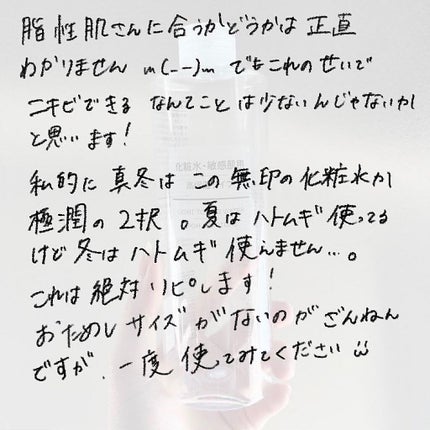 脂性肌さんに合うかどうかは正直
わかりません m(_ _)m でもこれのせいで
ニキビできる なんてことは少ないんじゃないか
と思います!
化粧水・敏感肌用
私的に 真冬は この無印の化粧水か
極潤の2択。夏はハトムギ使ってる
けど冬はハトムギ使えません...。
これは絶対リピします!
おためしサイズがないのがざんねん
ですが、一度使ってみてください